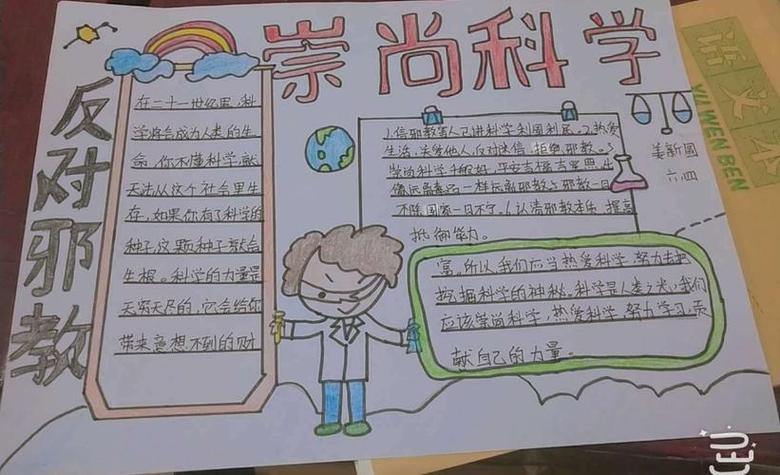 崇尚科学
反对邪教
在二十一世纪里,科
学将会成为人类的生
命,你不懂科学,就
无法从这个社会里生
存,如果你有了科学的
种子,这颗种子就会
生根。科学的力量是
无穷无尽的,它会给你
带来意想不到的财
1.信邪教害人己,讲科学利国利民。2.热爱
生活,关爱他人,反对迷信,拒绝邪教。3.
崇尚科学千般好,平安吉祥
像远离毒品一样远离邪教。邪教一日
不除,国家一日不宁。认清邪教本质 提高
抵御能力。
富。所以,我们应当热爱科学,努力去把
挖掘科学的神秘。科学是人类之光,我们
应该崇尚科学,热爱科学,努力学习,贡
献自己的力量。
姜新圆
六.四
语文本
YU WEN BEN